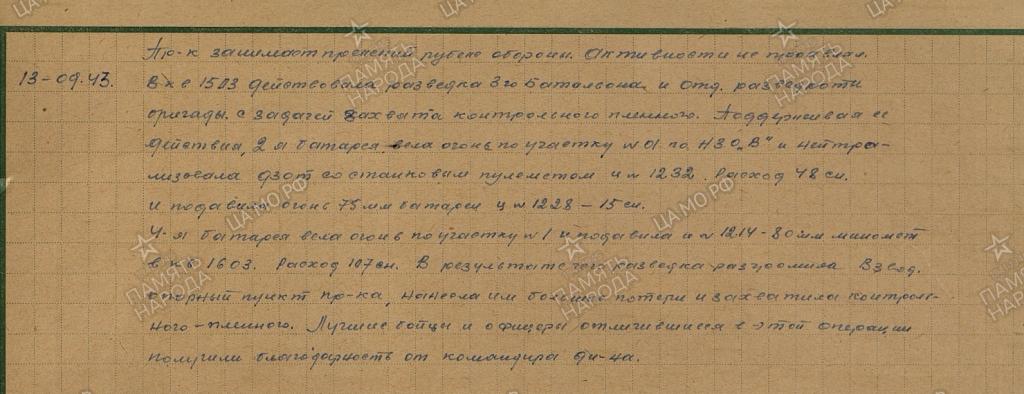 Пр-к занимает прежний рубеж обороны. Активности не проявлял.
13-09.43.
В кв 1503 действовала разведка 3го Батальона и Отд. разведроты
бригады с задачей захвата контрольного пленного. Поддерживая ее
действия, 2 я батарея вела огонь по участку №01 по НЗО „В" и нейтра-
лизовала дзот со станковым пулеметом ц №1232. Расход 48 сн.
и подавила огонь 75 мм батареи ц №1228 – 15 сн.
4-я батарея вела огонь по участку №1 и подавила ц №1214 - 80 мм миномет
в кв 1603. Расход 107 сн. В результате чего разведка разгромила Взвод.
опорный пункт пр-ка, нанесла им большие потери и захватила контроль-
ного-пленного. Лучшие бойцы и офицеры отличившиеся в этой операции
получили благодарность от командира ди-на.
ПАМЯТЬ НАРОДА
ЦА МО РФ